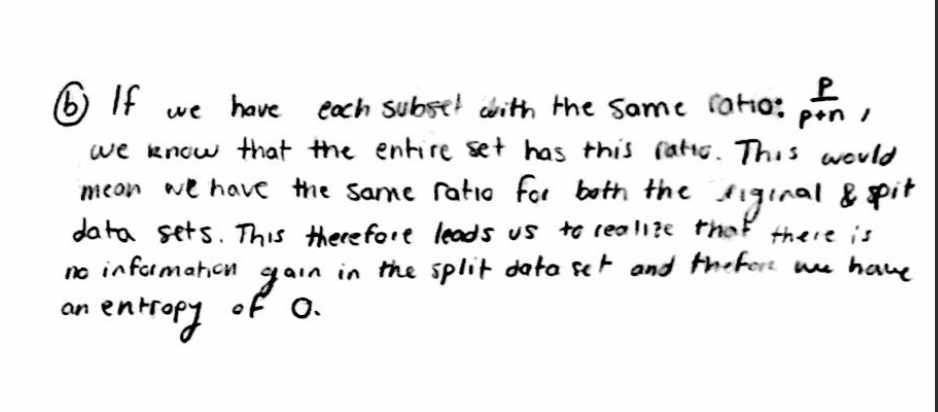 ⓑ If we have each subset with the same ratio: p/p+n ,
we know that the entire set has this ratio. This would
mean we have the same ratio for both the original & spit
data sets. This therefore leads us to realize that there is
no information gain in the split data set and thefore we have
an entropy of 0.